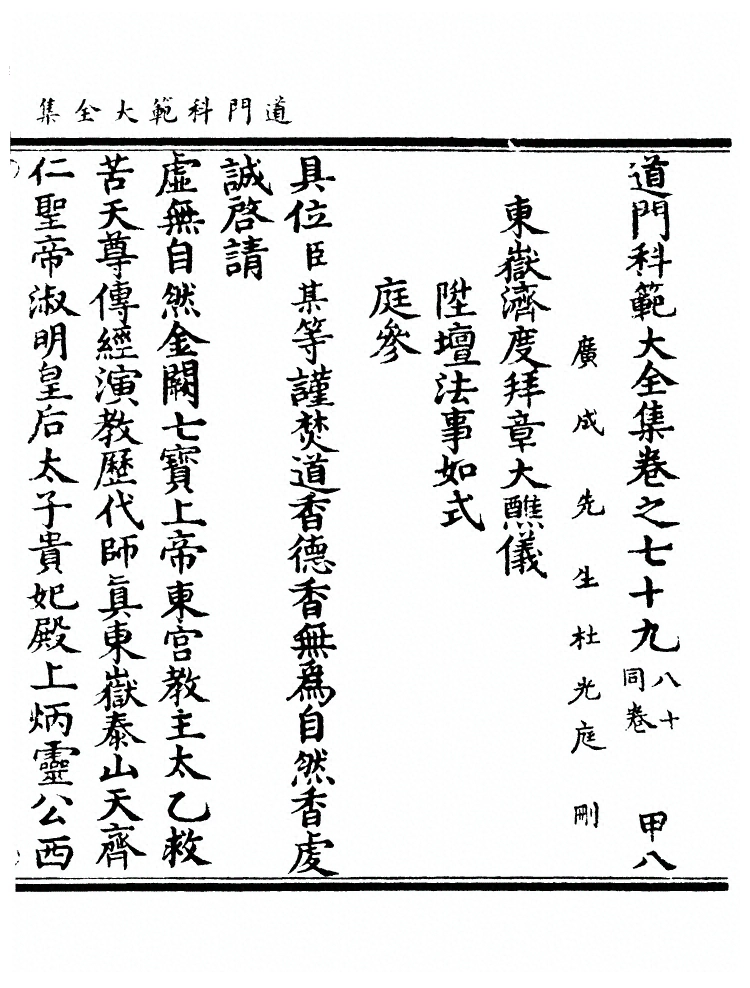 道門科範大全集
道門科範大全集卷之七十九 八十同卷 甲八
廣成先生杜光庭刪
東嶽濟度拜章大醮儀
陞壇法事如式
庭參
具位臣某等謹焚道香德香無爲自然香虔
誠啓請
虛無自然金闕七寶上帝東宮教主太乙救
苦天尊傳經演教歷代師眞東嶽泰山天齊
仁聖帝淑明皇后太子貴妃殿上炳靈公西